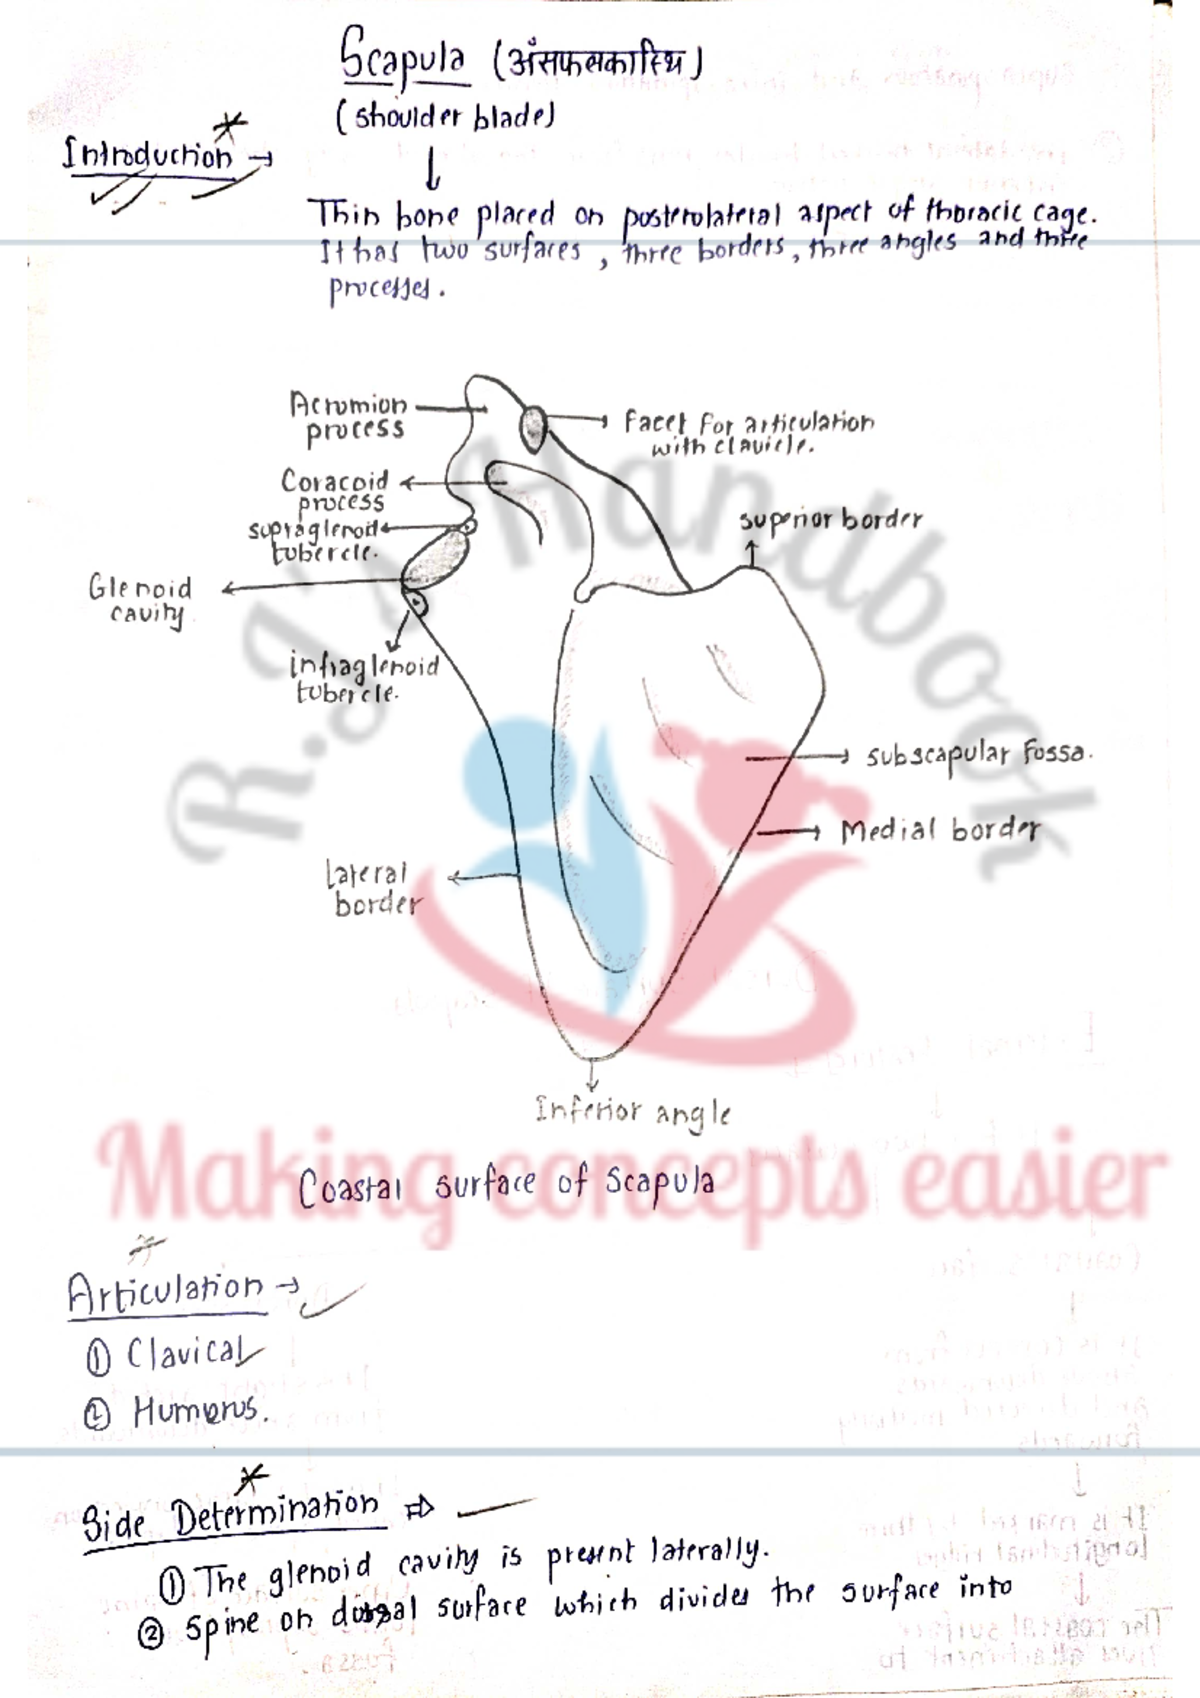 Scapula (अंसफलकास्थि)
(shoulder blade)
Introduction →
Thin bone placed on posterolateral aspect of thoracic cage.
It has two surfaces, three borders, three angles and three
processes.
Acromion
process
Facet for articulation
with clavicle.
Coracoid
process
supraglenoid
tubercle.
superior border
Glenoid
cavity
infraglenoid
tubercle.
subscapular fossa.
Medial border
Lateral
border
Inferior angle
R.J's Handbook
Making concepts easier
Coastal surface of Scapula
Articulation →
① Clavical
② Humerus.
Side Determination ⇒
① The glenoid cavity is present laterally.
② Spine on dorsal surface which divides the surface into